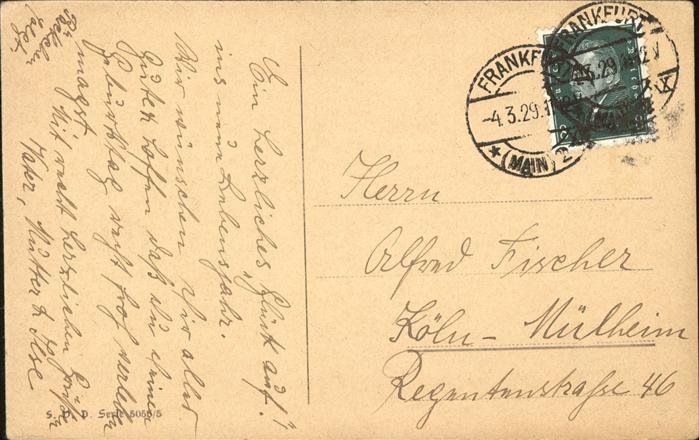 Ein herzliches "Glück auf!"
ins neue Lebensjahr.
Wir wünschen Dir alles
Guten hoffen daß du Deinen
Geburtstag recht froh verleben
magst.
Mit recht herzlichen Grüßen
Vater, Mutter & Ilse
S. V. D. Serie 5056/5
FRANKFURT
-4.3.29.
★ (MAIN) 2
FRANKFURT
.3.29.
Herrn
Alfred Fischer
Köln - Mülheim
Regentenstraße 46